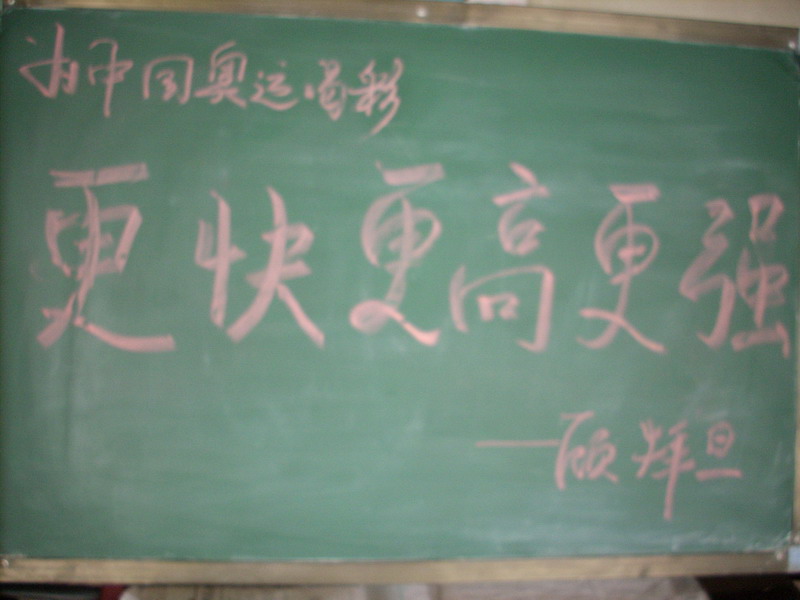 为中国奥运喝彩
更快更高更强
——顾烨旦